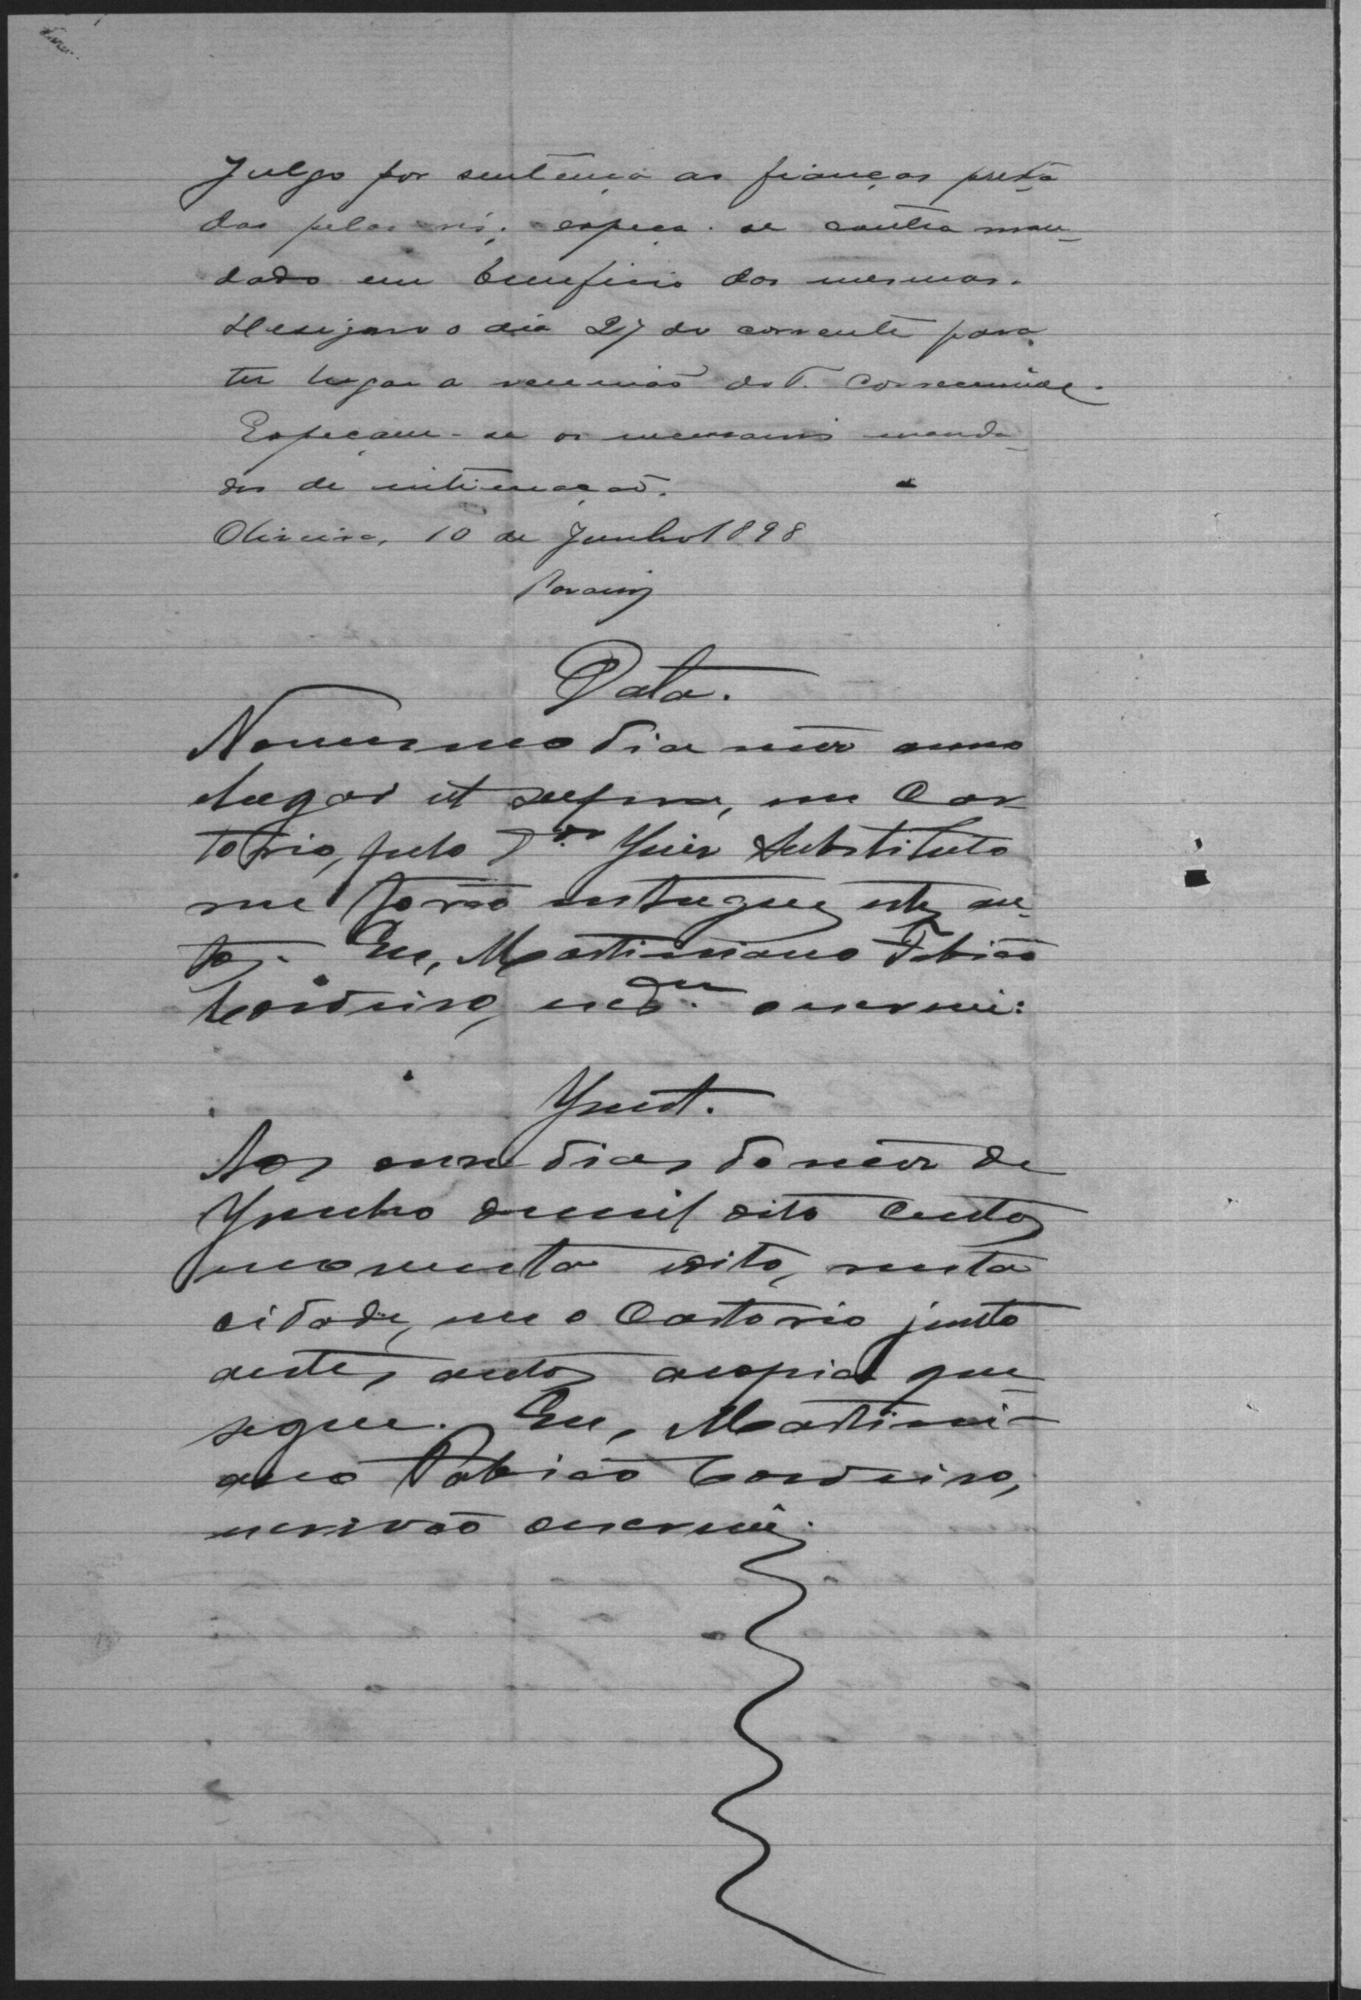 Julgo por sentença as fianças presta
das pelas rés; expeça-se contra man-
dado em beneficio das mesmas.
Designo o dia 27 do corrente para
ter lugar a reunião do T. Correccional.
Expeçam-se os necessarios manda-
dos de intimação.
Oliveira, 10 de Junho 1898
Data.
No mesmo dia mez anno
lugar ut supra, em Car
torio, pelo Dor Juiz Substituto
me forão entregues estes au-
tos. Eu, Martiniano Fabião
Cordeiro, escram o escrevi:
Junt.
Aos onze dias do mez de
Junho de mil oito centos
noventa e oito, nesta
cidade, em o Cartorio junto
a estes autos a copia que
segue. Eu, Martini-
ano Fabião Cordeiro,
escrivão o escrevi.